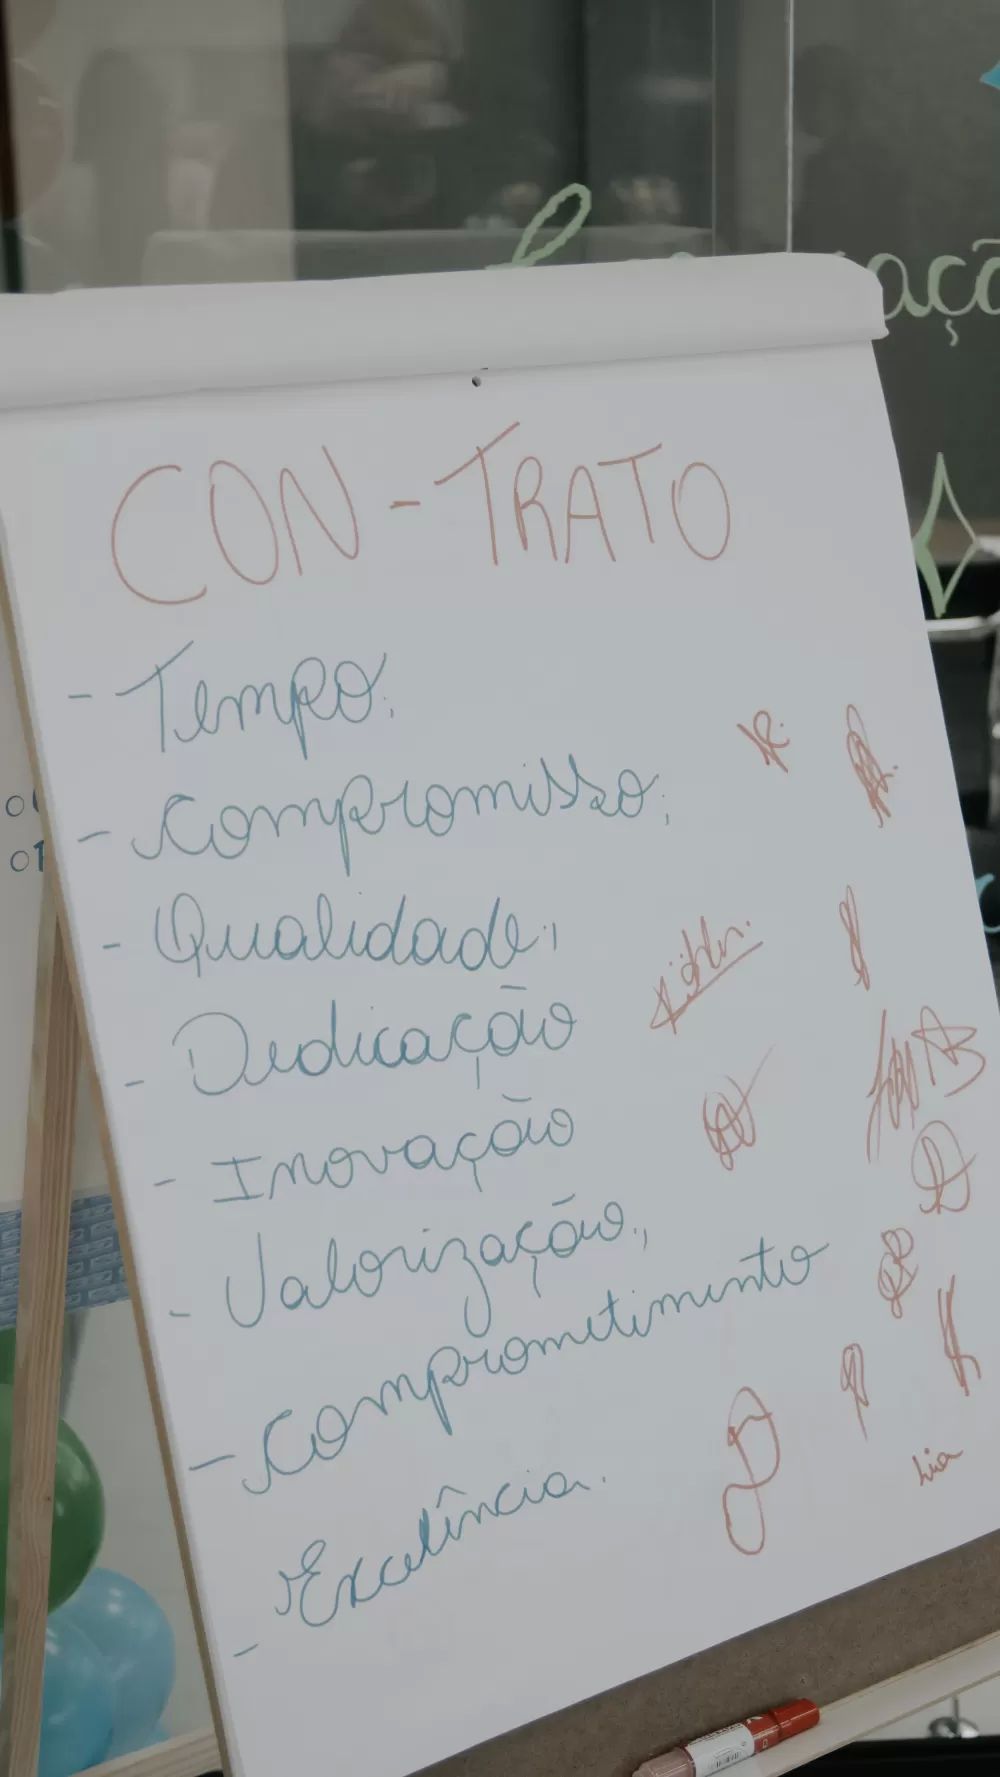 CON-TRATO
- Tempo;
- Compromisso;
- Qualidade;
- Dedicação
- Inovação
- Valorização;
- Comprometimento
- Excelência.
Lia